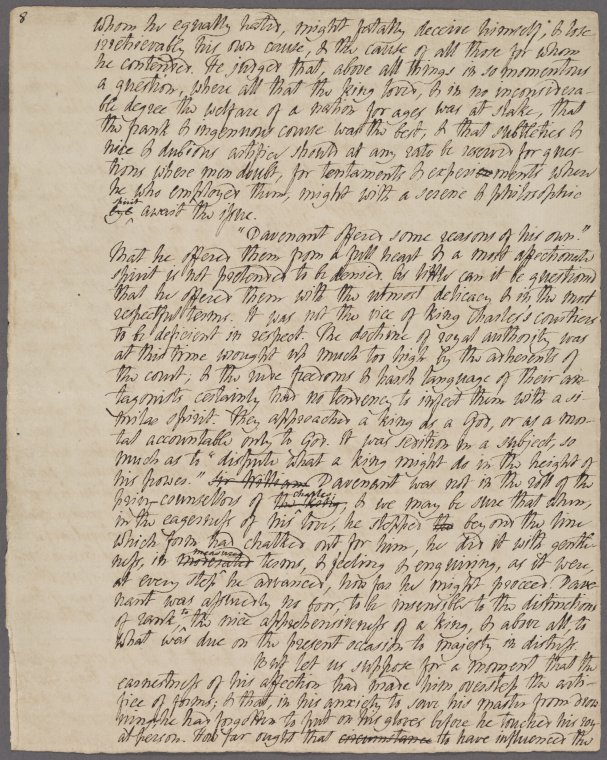 8
whom he equally hated, might fatally deceive himself, & lose
irretrievably his own cause, & the cause of all those for whom
he contended. He judged that, above all things in so momentous
a question, where all that the king loved, & in no inconsidera-
ble degree the welfare of a nation for ages was at stake, that
the frank & ingenuous course was the best, & that subtleties &
nice & dubious artifice should at any rate be reserved for ques-
tions where men doubt, for tentaments & experiments where
he who employed them, might with a serene & philosophic
spirit
eye await the issue.
"Davenant offered some reasons of his own."
That he offered them from a full heart & a most affectionate
spirit is not pretended to be denied. As little can it be questioned
that he offered them with the utmost delicacy & in the most
respectful terms. It was not the vice of king Charles's courtiers
to be deficient in respect. The doctrine of royal authority was
at this time wrought up much too high by the adherents of
the court; & the rude freedoms & harsh language of their an-
tagonists certainly had no tendency to infect them with a si-
milar spirit. They approached a king as a God, or as a mor-
tal accountable only to God. It was sedition in a subject, so
much as to "dispute what a king might do in the height of
his power." Sir William Davenant was not in the roll of the
charles
privy-counsellors of the king, & we may be sure that when,
in the eagerness of his love, he stepped beyond the line
which form had chalked out for him, he did it with gentle-
measured
ness, in moderated terms, & feeling & enquiring, as it were,
at every step he advanced, how far he might proceed. Dave-
nant was assuredly no boor, to be insensible to the distinctions
of rank, to the nice apprehensiveness of a king, & above all to
what was due on the present occasion to majesty in distress.
But let us suppose for a moment that the
earnestness of his affection had made him overstep the arti-
fice of forms; & that, in his anxiety to save his master from drow
ning, he had forgotten to put on his gloves before he touched his roy-
al person. How far ought that circumstance to have influenced the